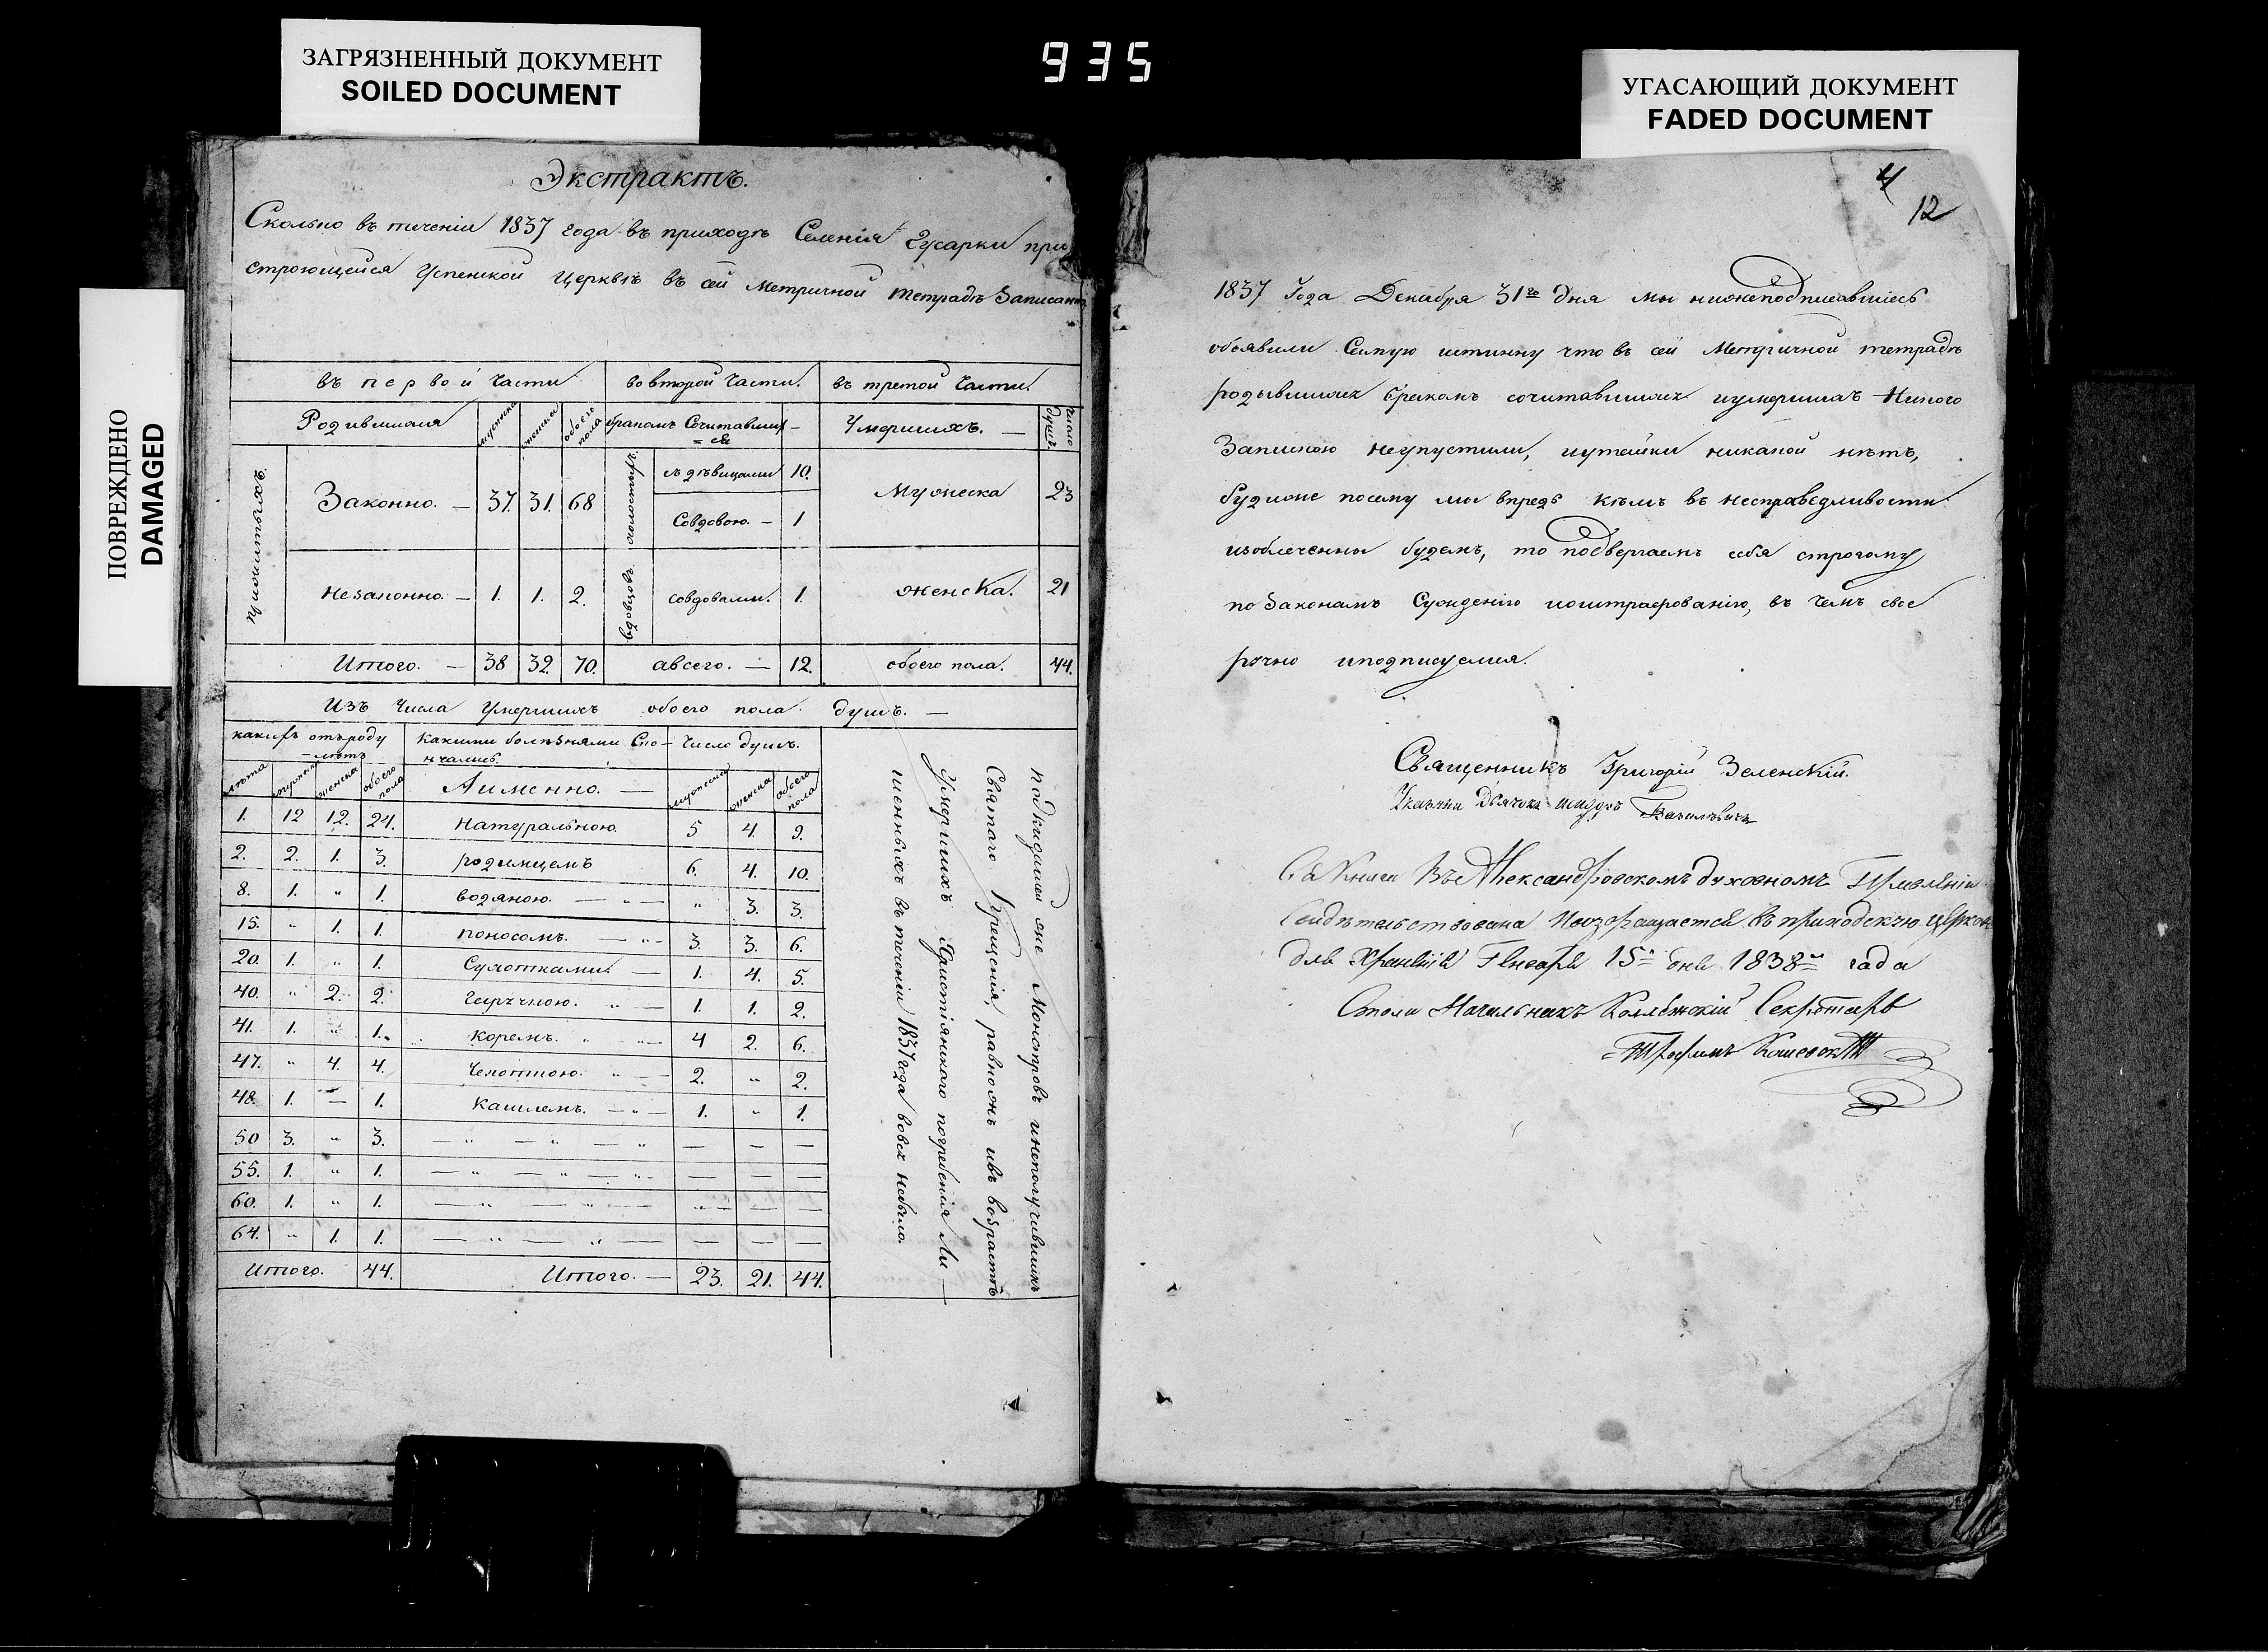 ЗАГРЯЗНЕННЫЙ ДОКУМЕНТ
SOILED DOCUMENT
935
УГАСАЮЩИЙ ДОКУМЕНТ
FADED DOCUMENT
ПОВРЕЖДЕНО
DAMAGED
Экстрактъ.
Сколько въ теченіи 1837 года въ приходѣ Селенія Гусарки при
строющейся Успенской Церквѣ въ сей Метричной тетрадѣ Записано
въ первой части
во второй части.
въ третой части.
Родившихся
мужеска
женска
обоего пола
бракомъ Сочитавших
=ся
Умершихъ. —
число душъ
Законно. — 37. 31. 68
незаконно. — 1. 1. 2.
Итого. — 38 32. 70.
съ дѣвицами 10.
Совдовою. — 1
вдовцовъ
совдовами. 1.
авсего. — 12.
Мужеска 23
женска. 21
обоего пола. 44.
Изъ Числа Умершихъ обоего пола душъ. —
какихъ отъ роду
—лѣтъ
какими болѣзнями Ско-
нчались
Число душъ.
лѣта
мужеска
женска
обоего пола
Аименно. —
мужеска
женска
обоего пола
1. 12 12. 24. Натуральною. 5 4. 9.
2. 2. 1. 3. родимцемъ 6. 4. 10.
8. 1. " 1. водяною. — " — " 3. 3.
15. " 1. 1. поносомъ. — " — 3. 3. 6.
20. 1. " 1. Сухотками. — 1. 4. 5.
40. " 2. 2. горячкою. " — 1. 1. 2.
41. 1. " 1. коремъ. " " — 4 2. 6.
47. " 4. 4. Чехоткою. " — 2. " 2.
48. 1. — 1. Кашлемъ. — " — 1. " 1.
50 3. " 3. — " — " — " — — —
55. 1. " 1. — " — " — " — — —
60. 1. " 1. — " — " — " — —
64. " 1. 1. — " — " — — — —
Итого. 44. Итого. — 23. 21. 44.
Подкидышей же Монстровъ инеполучившихъ
Святаго Крещенія, равножъ ивъ возрастѣ
Умершихъ Христіянского погребенія Ли —
шенныхъ въ теченіи 1837 года вовсе небыло.
4
12
1837 Года Декабря 31го дня мы нижеподписавшіесь
объявили Самую истинну что въ сей Метричной тетрадѣ
родывшихся бракомъ сочитавшихся иумершихъ Никого
Запискою неупустили, иутайки никакой нѣтъ,
будиже посему мы впредь кѣмъ въ несправедливости
изобличенны будемъ, то подвергаемъ себя строгому
по Законамъ Сужденію иоштрафованію, въ чемъ свое
ручно иподписуемся.
Священникъ Григорій Зеленскій.
Указный Дьячокъ
Сія Книга Въ Александровскомъ духовномъ Правленіи
Свидѣтельствована Ивозвращается въ приходскую церковь
для Храненія Генваря 15го дня 1838го года
Стола Начальникъ Коллежскій Секретарь
Трофимъ